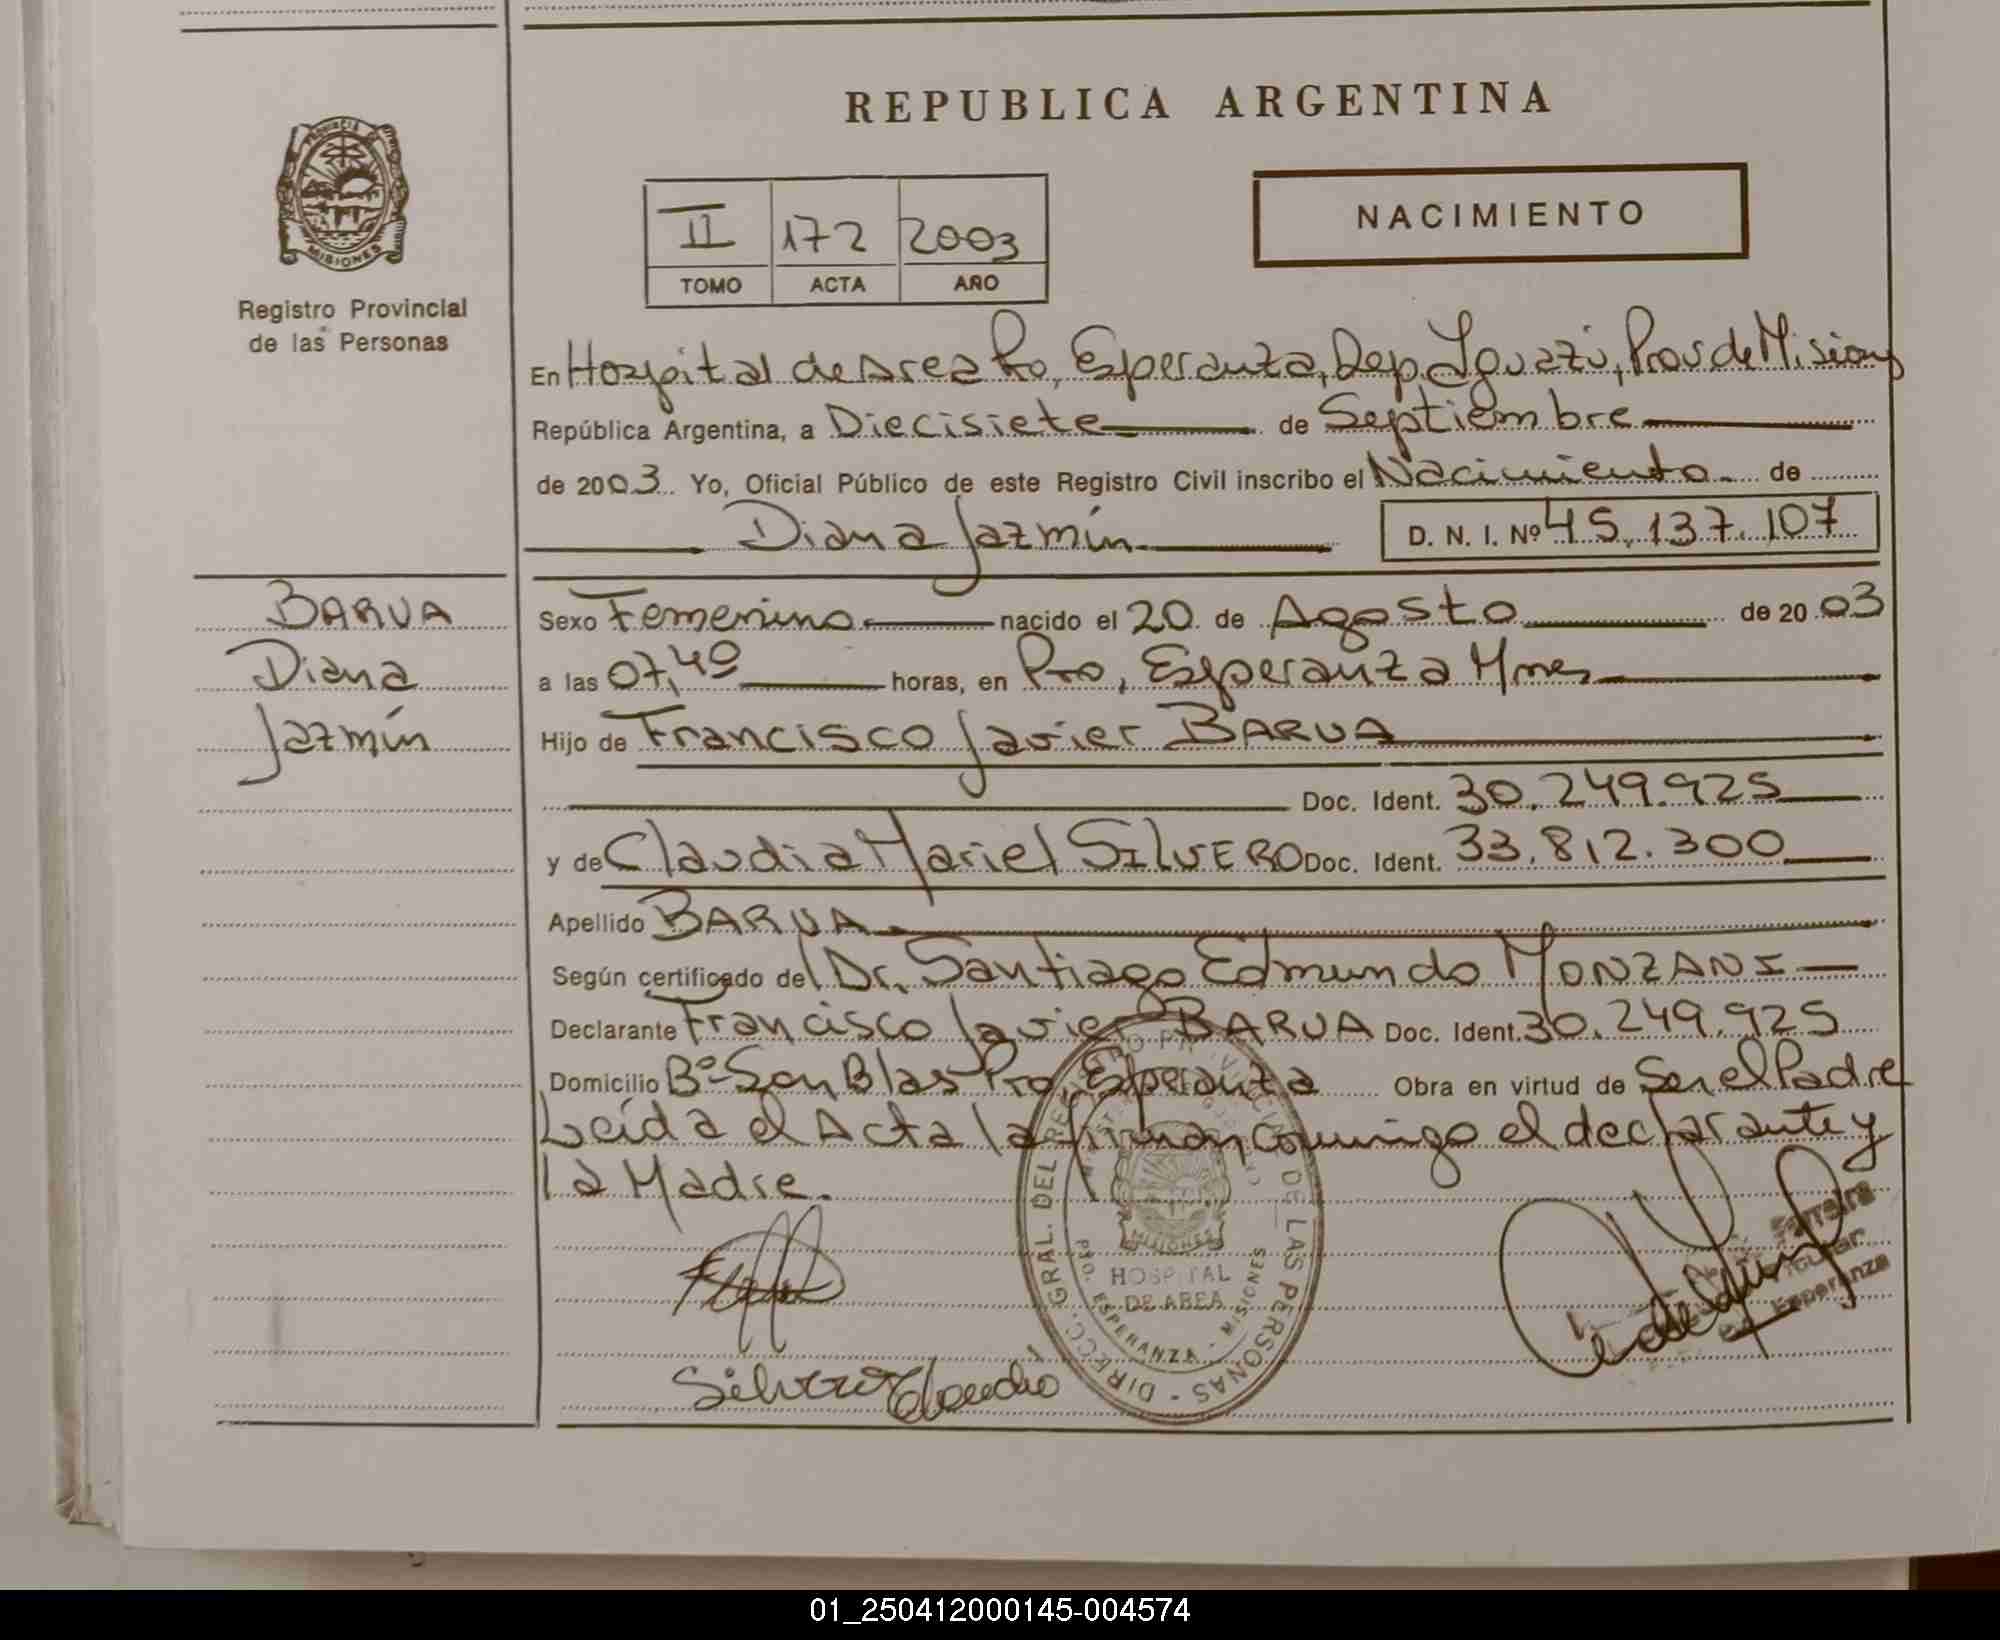 REPUBLICA ARGENTINA
PROVINCIA
MISIONES
Registro Provincial
de las Personas
II 172 2003
TOMO ACTA AÑO
NACIMIENTO
En Hospital de Area Pto, Esperanza, Dep. Iguazú, Prov de Misiones
República Argentina, a Diecisiete de Septiembre
de 2003. Yo, Oficial Público de este Registro Civil inscribo el Nacimiento de
Diana Jazmín D. N. I. Nº 45.137.107
BARUA
Diana
Jazmín
Sexo Femenino nacido el 20 de Agosto de 2003
a las 07,40 horas, en Pto, Esperanza Mnes
Hijo de Francisco Javier BARUA
Doc. Ident. 30.249.925
y de Claudia Mariel SILVERO Doc. Ident. 33.812.300
Apellido BARUA
Según certificado del Dr. Santiago Edmundo MONZANI
Declarante Francisco Javier BARUA Doc. Ident. 30.249.925
Domicilio Bº San Blas Pto, Esperanza Obra en virtud de Ser el Padre
Leída el Acta la firman conmigo el declarante y
la Madre.
DIRECC. GRAL. DEL REGISTRO PROVINCIAL DE LAS PERSONAS
MISIONES
HOSPITAL
DE AREA
PTO. ESPERANZA - MISIONES
Silvero Claudia
Ferreira
Esperanza
01_250412000145-004574